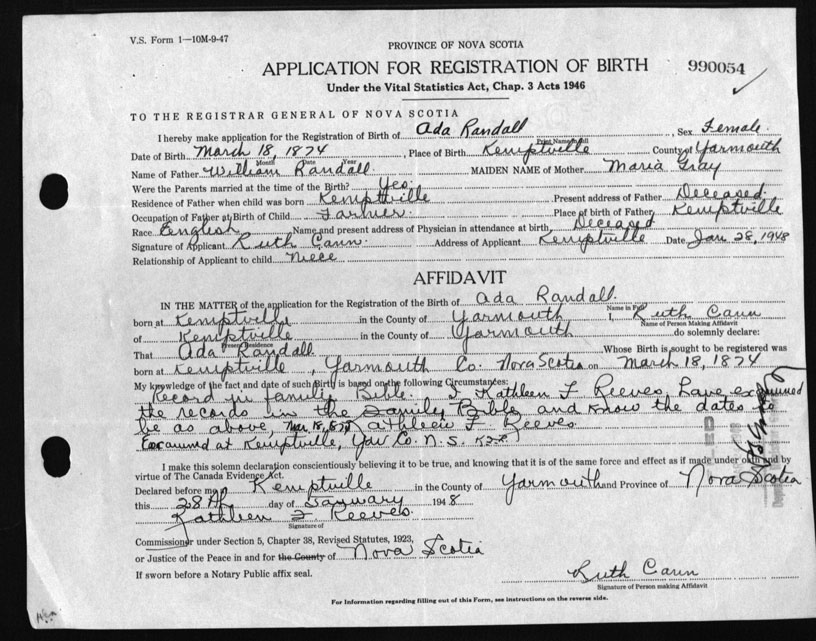 V.S. Form 1—10M-9-47
PROVINCE OF NOVA SCOTIA
APPLICATION FOR REGISTRATION OF BIRTH 990054
Under the Vital Statistics Act, Chap. 3 Acts 1946
TO THE REGISTRAR GENERAL OF NOVA SCOTIA
I hereby make application for the Registration of Birth of Ada Randall, Sex Female.
Print Name in full
Date of Birth March 18, 1874, Place of Birth Kemptville County of Yarmouth
Month Date Year
Name of Father William Randall. MAIDEN NAME of Mother Maria Gray
Were the Parents married at the time of the Birth? Yes
Residence of Father when child was born Kemptville Present address of Father Deceased.
Occupation of Father at Birth of Child Farmer. Place of birth of Father Kemptville
Race English Name and present address of Physician in attendance at birth Deceased
Signature of Applicant Ruth Cann. Address of Applicant Kemptville Date Jan 28, 1948
Relationship of Applicant to child Niece
AFFIDAVIT
IN THE MATTER of the application for the Registration of the Birth of Ada Randall.
Name in Full
born at Kemptville in the County of Yarmouth I, Ruth Cann
Name of Person Making Affidavit
of Kemptville in the County of Yarmouth do solemnly declare:
Present Residence
That Ada Randall Whose Birth is sought to be registered was
born at Kemptville, Yarmouth Co. Nova Scotia on March 18, 1874
My knowledge of the fact and date of such Birth is based on the following Circumstances:
Record in family Bible. I Kathleen F Reeves, have examined
the records in the Family Bible and know the dates to
be as above, Mar 18, 1874 Kathleen F. Reeves
Examined at Kemptville, Yar Co. N.S.
I make this solemn declaration conscientiously believing it to be true, and knowing that it is of the same force and effect as if made under oath and by
virtue of The Canada Evidence Act.
Declared before me Kemptville in the County of Yarmouth and Province of Nova Scotia
this 28th day of January 1948
Kathleen F. Reeves
Signature of
Commissioner under Section 5, Chapter 38, Revised Statutes, 1923,
or Justice of the Peace in and for the County of Nova Scotia
If sworn before a Notary Public affix seal.
Ruth Cann
Signature of Person making Affidavit
For Information regarding filling out of this Form, see instructions on the reverse side.